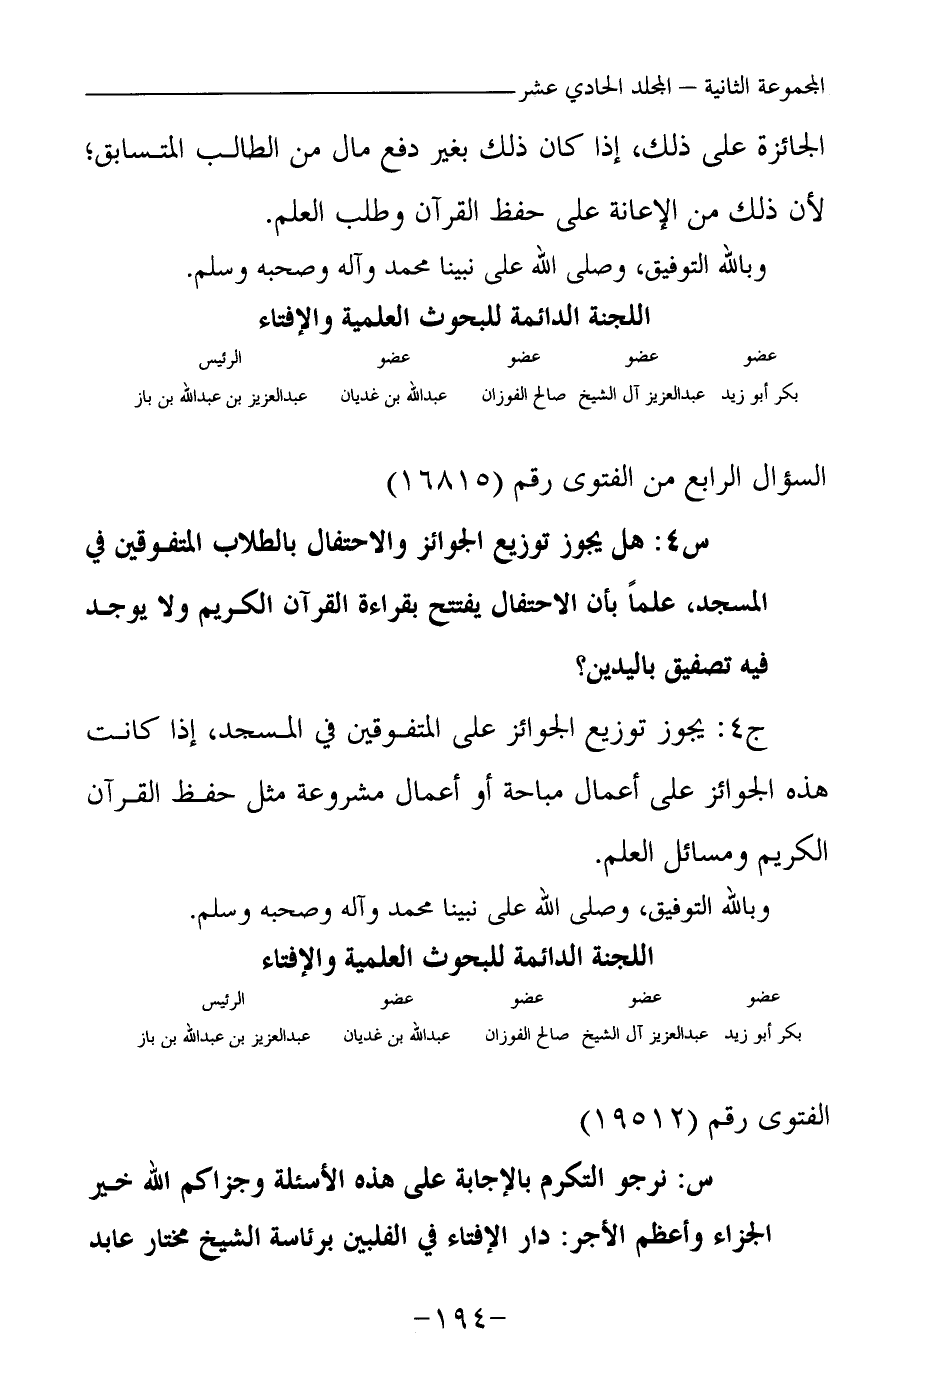 المجموعة الثانية – المجلد الحادي عشر
الجائزة على ذلك، إذا كان ذلك بغير دفع مال من الطالب المتسابق؛
لأن ذلك من الإعانة على حفظ القرآن وطلب العلم.
وبالله التوفيق، وصلى الله على نبينا محمد وآله وصحبه وسلم.
اللجنة الدائمة للبحوث العلمية والإفتاء
عضو عضو عضو عضو الرئيس
بكر أبو زيد عبدالعزيز آل الشيخ صالح الفوزان عبدالله بن غديان عبدالعزيز بن عبدالله بن باز
السؤال الرابع من الفتوى رقم (١٦٨١٥)
س٤: هل يجوز توزيع الجوائز والاحتفال بالطلاب المتفوقين في
المسجد، علماً بأن الاحتفال يفتتح بقراءة القرآن الكريم ولا يوجد
فيه تصفيق باليدين؟
ج٤: يجوز توزيع الجوائز على المتفوقين في المسجد، إذا كانت
هذه الجوائز على أعمال مباحة أو أعمال مشروعة مثل حفظ القرآن
الكريم ومسائل العلم.
وبالله التوفيق، وصلى الله على نبينا محمد وآله وصحبه وسلم.
اللجنة الدائمة للبحوث العلمية والإفتاء
عضو عضو عضو عضو الرئيس
بكر أبو زيد عبدالعزيز آل الشيخ صالح الفوزان عبدالله بن غديان عبدالعزيز بن عبدالله بن باز
الفتوى رقم (١٩٥١٢)
س: نرجو التكرم بالإجابة على هذه الأسئلة وجزاكم الله خير
الجزاء وأعظم الأجر: دار الإفتاء في الفلبين برئاسة الشيخ مختار عابد
-١٩٤-